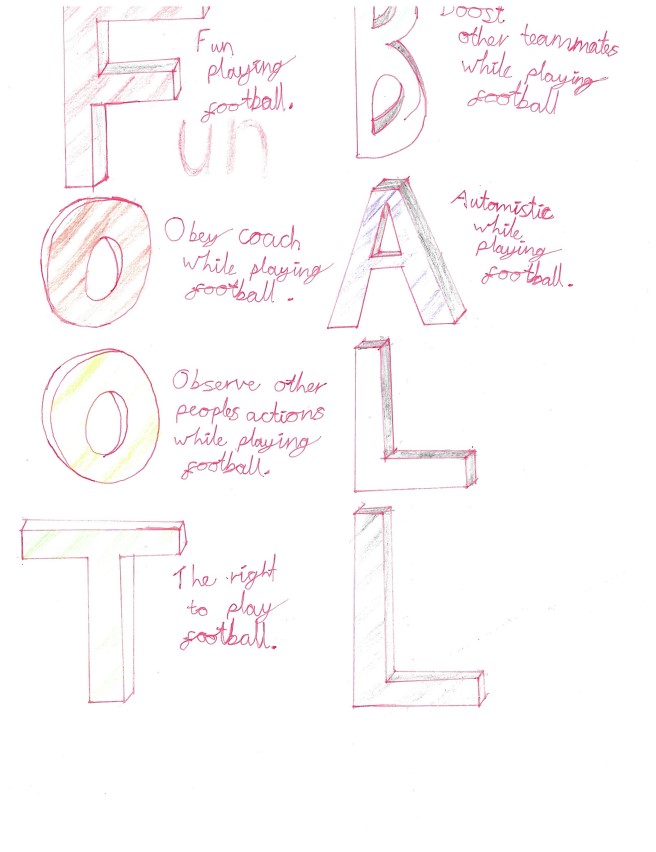 F
Fun
playing
football.
un
O
Obey coach
while playing
football.
O
Observe other
peoples actions
while playing
football.
T
The right
to play
football.
B
Boost
other teammates
while playing
football
A
Automistic
while
playing
football.
L
L